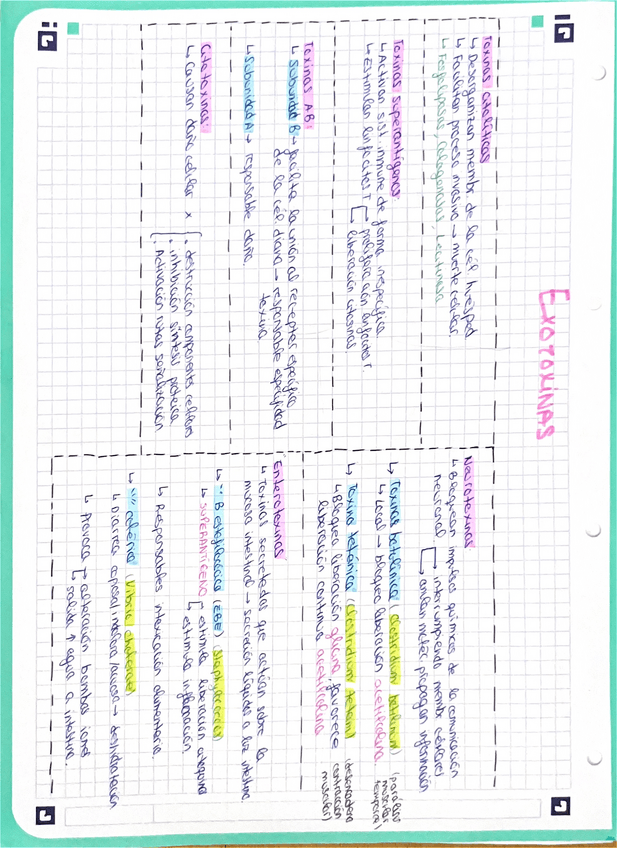 EXOTOXINAS
Toxinas citolíticas
↳ Desorganizan membr. de la cél. huésped
↳ Facilitan proceso invasivo → muerte celular.
↳ Fosfolipasas, Colagenasas, Lecitinasa
Toxinas superantígenas.
↳ Activan sist. inmune de forma inespecífica.
↳ Estimulan linfocitos T
proliferación linfocitos T.
liberación citoquinas.
Toxinas AB:
↳ Subunidad B → facilita la unión al receptor específico
de la cél. diana → responsable especificidad
toxina
↳ Subunidad A → responsable daño.
Citotoxinas:
↳ Causan daño celular x
• destrucción componentes celulares
• inhibición síntesis proteica
• Activación rutas señalización
Neurotoxinas
↳ Bloquean impulsos químicos de la comunicación
neuronal.
interrumpiendo membr. celulares
propagan información
↳ Toxina botulínica (Clostridium botulinum) (parálisis
muscular
temporal)
↳ Local → bloquea liberación acetilcolina.
↳ Toxina tetánica (Clostridium tetani) (desencadena
contracción
muscular)
↳ Bloquea liberación glicina, favorece
liberación continua acetilcolina
Enterotoxinas
↳ Toxinas secretadas que actúan sobre la
mucosa intestinal → secreción líquido a luz intestino.
↳ " B estafilocócica (EBE) (Staphylococcus)
↳ SUPERANTÍGENO
estimula liberación citoquinas
estimula inflamación.
↳ Responsables intoxicación alimentaria.
↳ " colérica (Vibrio cholerae)
↳ Diarrea copiosa/indolora/acuosa → deshidratación
↳ Provoca
alteración bombas iones
salida ↑ agua a intestino.